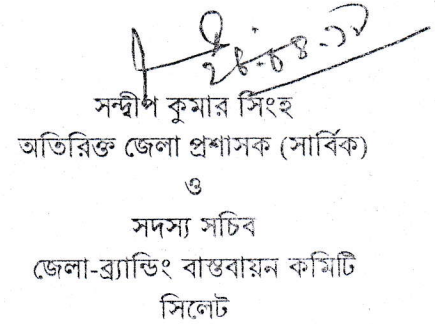 সন্দ্বীপ কুমার সিংহ
অতিরিক্ত জেলা প্রশাসক (সার্বিক)
ও
সদস্য সচিব
জেলা-ব্র্যান্ডিং বাস্তবায়ন কমিটি
সিলেট